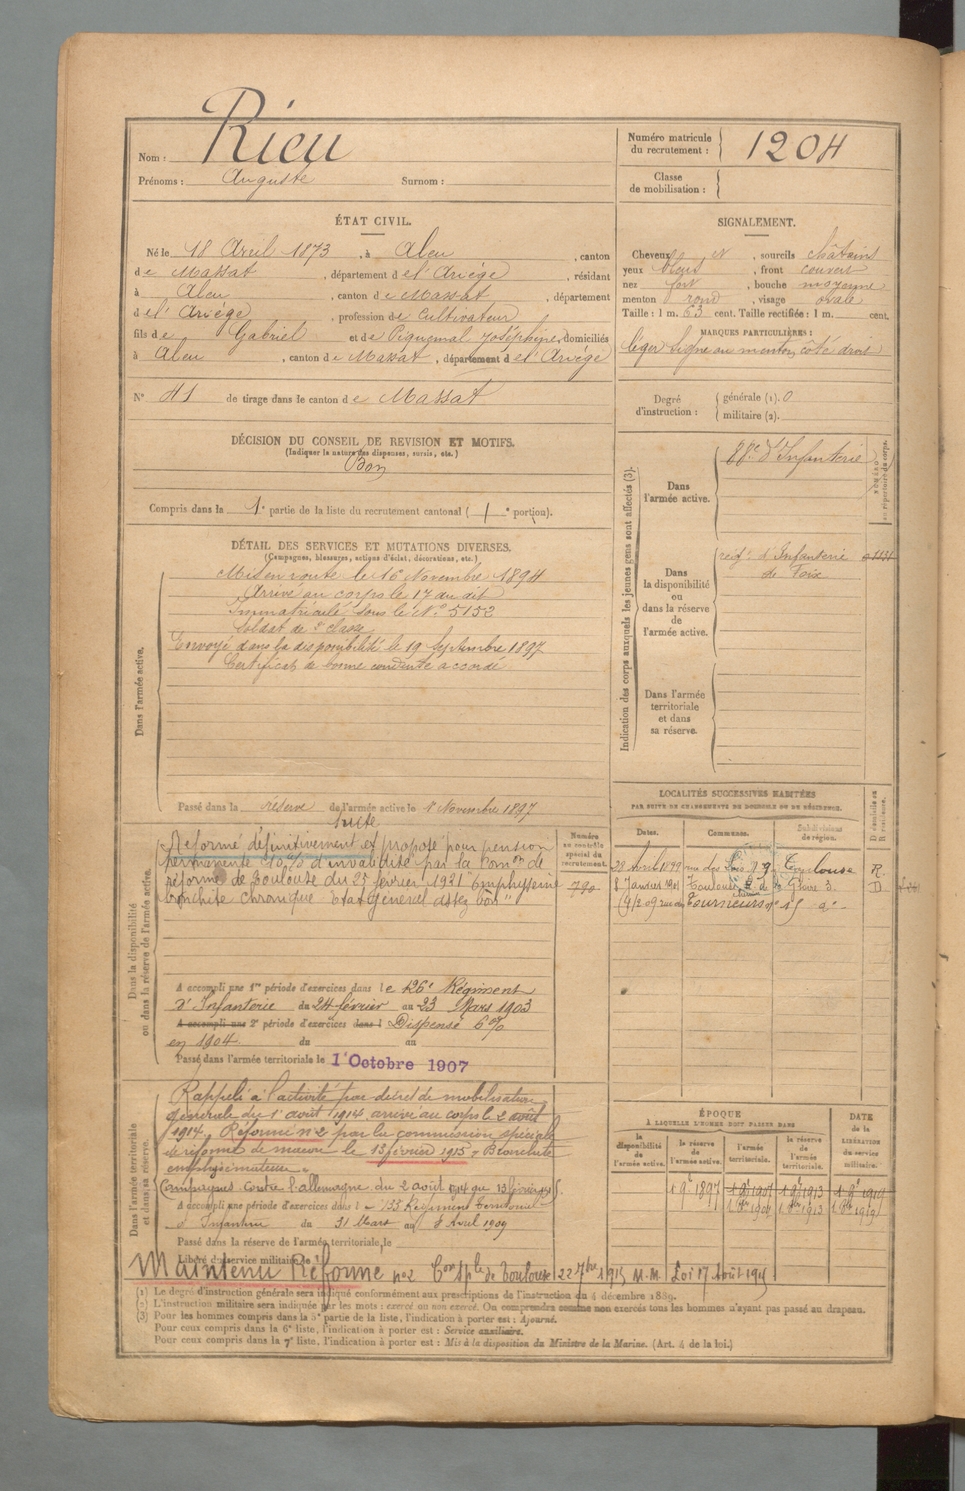 Nom : Rieu
Prénoms : Auguste Surnom :
Numéro matricule du recrutement : 1204
Classe de mobilisation :
ÉTAT CIVIL.
Né le 18 Avril 1873, à Aleu, canton
de Massat, département de l'Ariège, résidant
à Aleu, canton de Massat, département
de l'Ariège, profession de Cultivateur
fils de Gabriel et de Piquemal Joséphine, domiciliés
à Aleu, canton de Massat, département de l'Ariège
N° 41 de tirage dans le canton de Massat
SIGNALEMENT.
Cheveux et, sourcils châtains
yeux bleus, front couvert
nez fort, bouche moyenne
menton rond, visage ovale
Taille : 1 m. 63 cent. Taille rectifiée : 1 m. cent.
MARQUES PARTICULIÈRES :
léger signe au menton, côté droit
Degré d'instruction : générale (1). 0
militaire (2).
DÉCISION DU CONSEIL DE REVISION ET MOTIFS.
(Indiquer la nature des dispenses, sursis, etc.)
Bon
Compris dans la 1e partie de la liste du recrutement cantonal ( 1e portion).
DÉTAIL DES SERVICES ET MUTATIONS DIVERSES.
(Campagnes, blessures, actions d'éclat, décorations, etc.)
Dans l'armée active.
Mis en route le 16 Novembre 1894
Arrivé au corps le 17 au dit
Immatriculé sous le N° 5152
Soldat de 2e classe
Envoyé dans la disponibilité le 19 Septembre 1897
Certificat de bonne conduite accordé
Passé dans la réserve de l'armée active le 1 Novembre 1897
Indication des corps auxquels les jeunes gens sont affectés (3).
Dans l'armée active. d'Infanterie
NUMÉRO au répertoire du corps.
Dans la disponibilité ou dans la réserve de l'armée active.
d'Infanterie
de Foix
Dans l'armée territoriale et dans sa réserve.
LOCALITÉS SUCCESSIVES HABITÉES
PAR SUITE DE CHANGEMENTS DE DOMICILE OU DE RÉSIDENCE.
Dates. Communes. Subdivisions de région. D domicile ou R résidence.
Avril 1899 Toulouse R.
8 Janvier 1901 Toulouse D
Tourneurs n° 15 d°
Dans la disponibilité ou dans la réserve de l'armée active.
suite
Réformé définitivement et proposé pour pension
permanente 10 % d'invalidité par la Com on de
réforme de Toulouse du 25 février 1921 "Emphysème
bronchite chronique Etat général assez bon"
Numéro au contrôle spécial du recrutement.
790
A accompli une 1re période d'exercices dans le 126e Régiment
d'Infanterie du 24 février au 23 Mars 1903
A accompli une 2e période d'exercices dans l Dispensé
en 1904 du au
Passé dans l'armée territoriale le 1er Octobre 1907
Dans l'armée territoriale et dans sa réserve.
Rappelé à l'activité par décret de mobilisation
générale du 1er août 1914 arrivé au corps le 2 août
1914. Réformé n° 2 par la commission spéciale
de réforme de le 13 février 1915, Bronchite
Campagnes contre l'allemagne du 2 août 1914 au 13 février 1915
A accompli une période d'exercices dans l e 133 Régiment Territorial
d'Infanterie du 31 Mars au 8 Avril 1909
Passé dans la réserve de l'armée territoriale, le
Libéré du service militaire le
Maintenu Réformé n°2 Con Sple de Toulouse 22 1915 M.M. Loi 17 Août 1915
ÉPOQUE
À LAQUELLE L'HOMME DOIT PASSER DANS
la disponibilité de l'armée active. la réserve de l'armée active. l'armée territoriale. la réserve de l'armée territoriale.
DATE de la LIBÉRATION DU SERVICE militaire.
1897 1907 1913 1919
(1) Le degré d'instruction générale sera indiqué conformément aux prescriptions de l'instruction du 4 décembre 1889.
(2) L'instruction militaire sera indiquée par les mots : exercé ou non exercé. On comprendra comme non exercés tous les hommes n'ayant pas passé au drapeau.
(3) Pour les hommes compris dans la 5e partie de la liste, l'indication à porter est : Ajourné.
Pour ceux compris dans la 6e liste, l'indication à porter est : Service auxiliaire.
Pour ceux compris dans la 7e liste, l'indication à porter est : Mis à la disposition du Ministre de la Marine. (Art. 4 de la loi.)